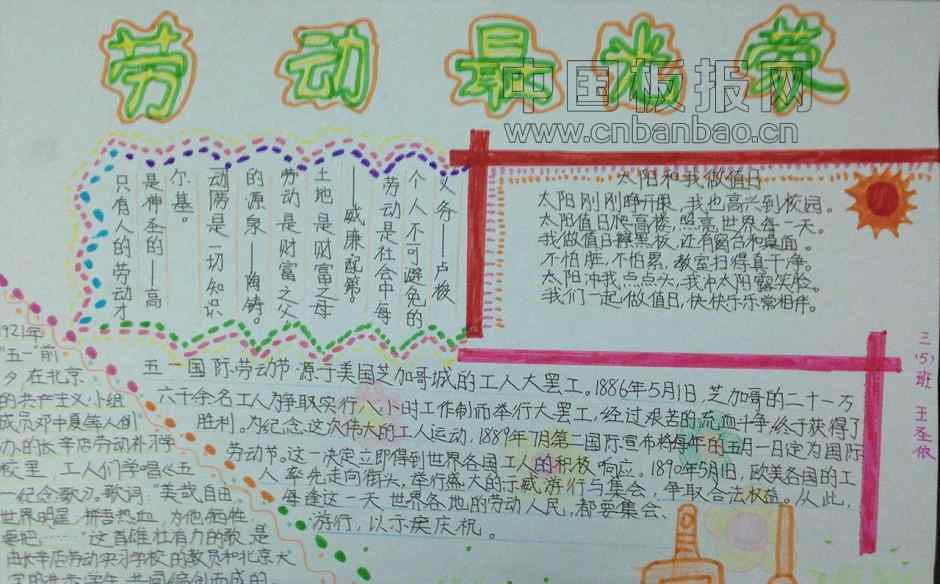 劳动最光荣
中国板报网
www.cnbanbao.cn
只有人的劳动才
是神圣的——高
尔基。
动劳是一切知识
的源泉——陶铸。
劳动是财富之父
土地是财富之母
——威廉配第。
劳动是社会中每
个人不可避免的
义务——卢梭
太阳和我做值日
太阳刚刚睁开眼,我也高兴到校园。
太阳值日爬高楼,照亮世界每一天。
我做值日擦黑板,还有窗台和桌面。
不怕脏,不怕累,教室扫得真干净。
太阳冲我点点头,我冲太阳露笑脸。
我们一起做值日,快快乐乐常相伴。
三(5)班 王圣依
五一国际劳动节源于美国芝加哥城的工人大罢工。1886年5月1日,芝加哥的二十一万
六千余名工人为争取实行八小时工作制而举行大罢工,经过艰苦的流血斗争,终于获得了
胜利。为纪念这次伟大的工人运动,1889年7月第二国际宣布将每年的五月一日定为国际
劳动节。这一决定立即得到世界各国工人的积极响应。1890年5月1日,欧美各国的工
人率先走向街头,举行盛大的示威游行与集会,争取合法权益。从此,
每逢这一天世界各地的劳动人民,都要集会、
游行,以示庆祝。
1921年
“五一”前
夕,在北京
的共产主义小组
成员邓中夏等人创
办的长辛店劳动补习学
校里,工人们学唱《五
一纪念歌》。歌词:“美哉自由
世界明星,拚吾热血,为他牺牲,
要把……”这首雄壮有力的歌,是
由长辛店劳动实习学校的教员和北京大
学的进步学生共同编创而成的。